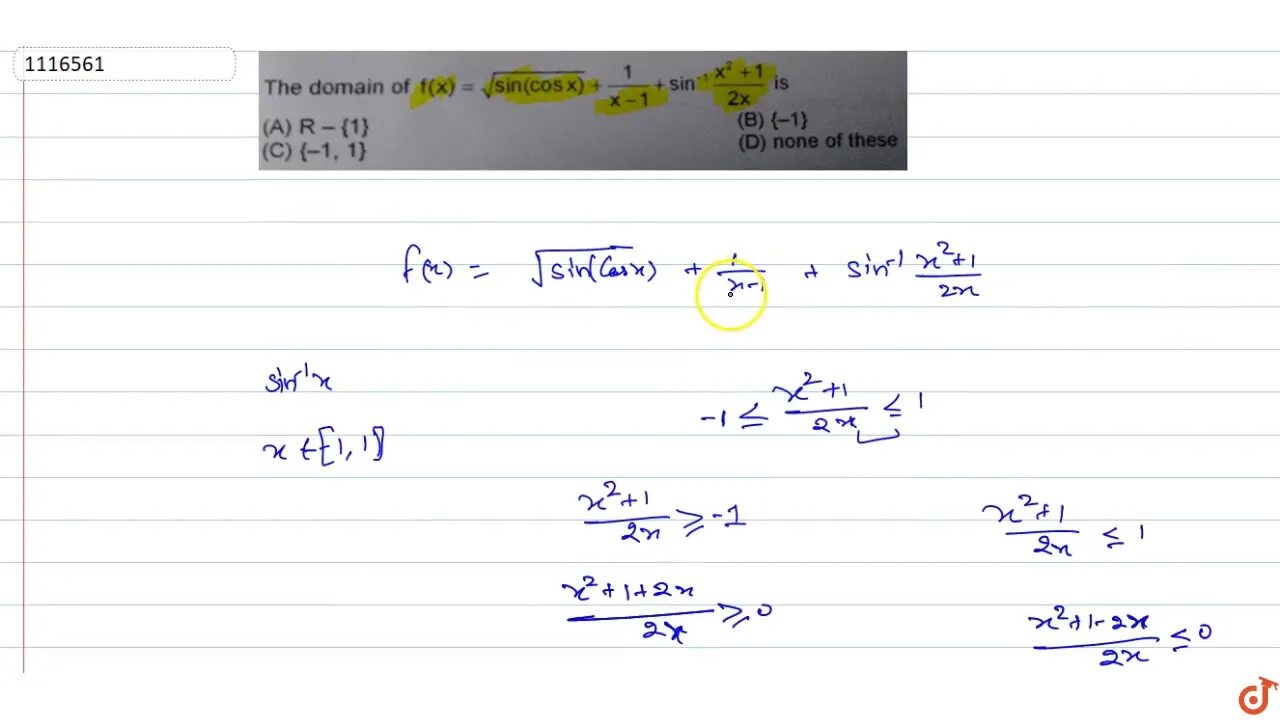 1116561
The domain of f(x) = √sin(cos x) + 1/(x − 1) + sin⁻¹ (x² + 1)/2x is
(A) R – {1} (B) {–1}
(C) {–1, 1} (D) none of these
f(x) = √sin(Cosx) + 1/(x-1) + sin⁻¹ (x²+1)/2x
sin⁻¹x
-1 ≤ (x²+1)/2x ≤ 1
x ∈ [-1, 1]
(x²+1)/2x ⩾ -1
(x²+1)/2x ≤ 1
(x²+1+2x)/2x ⩾ 0
(x²+1-2x)/2x ≤ 0